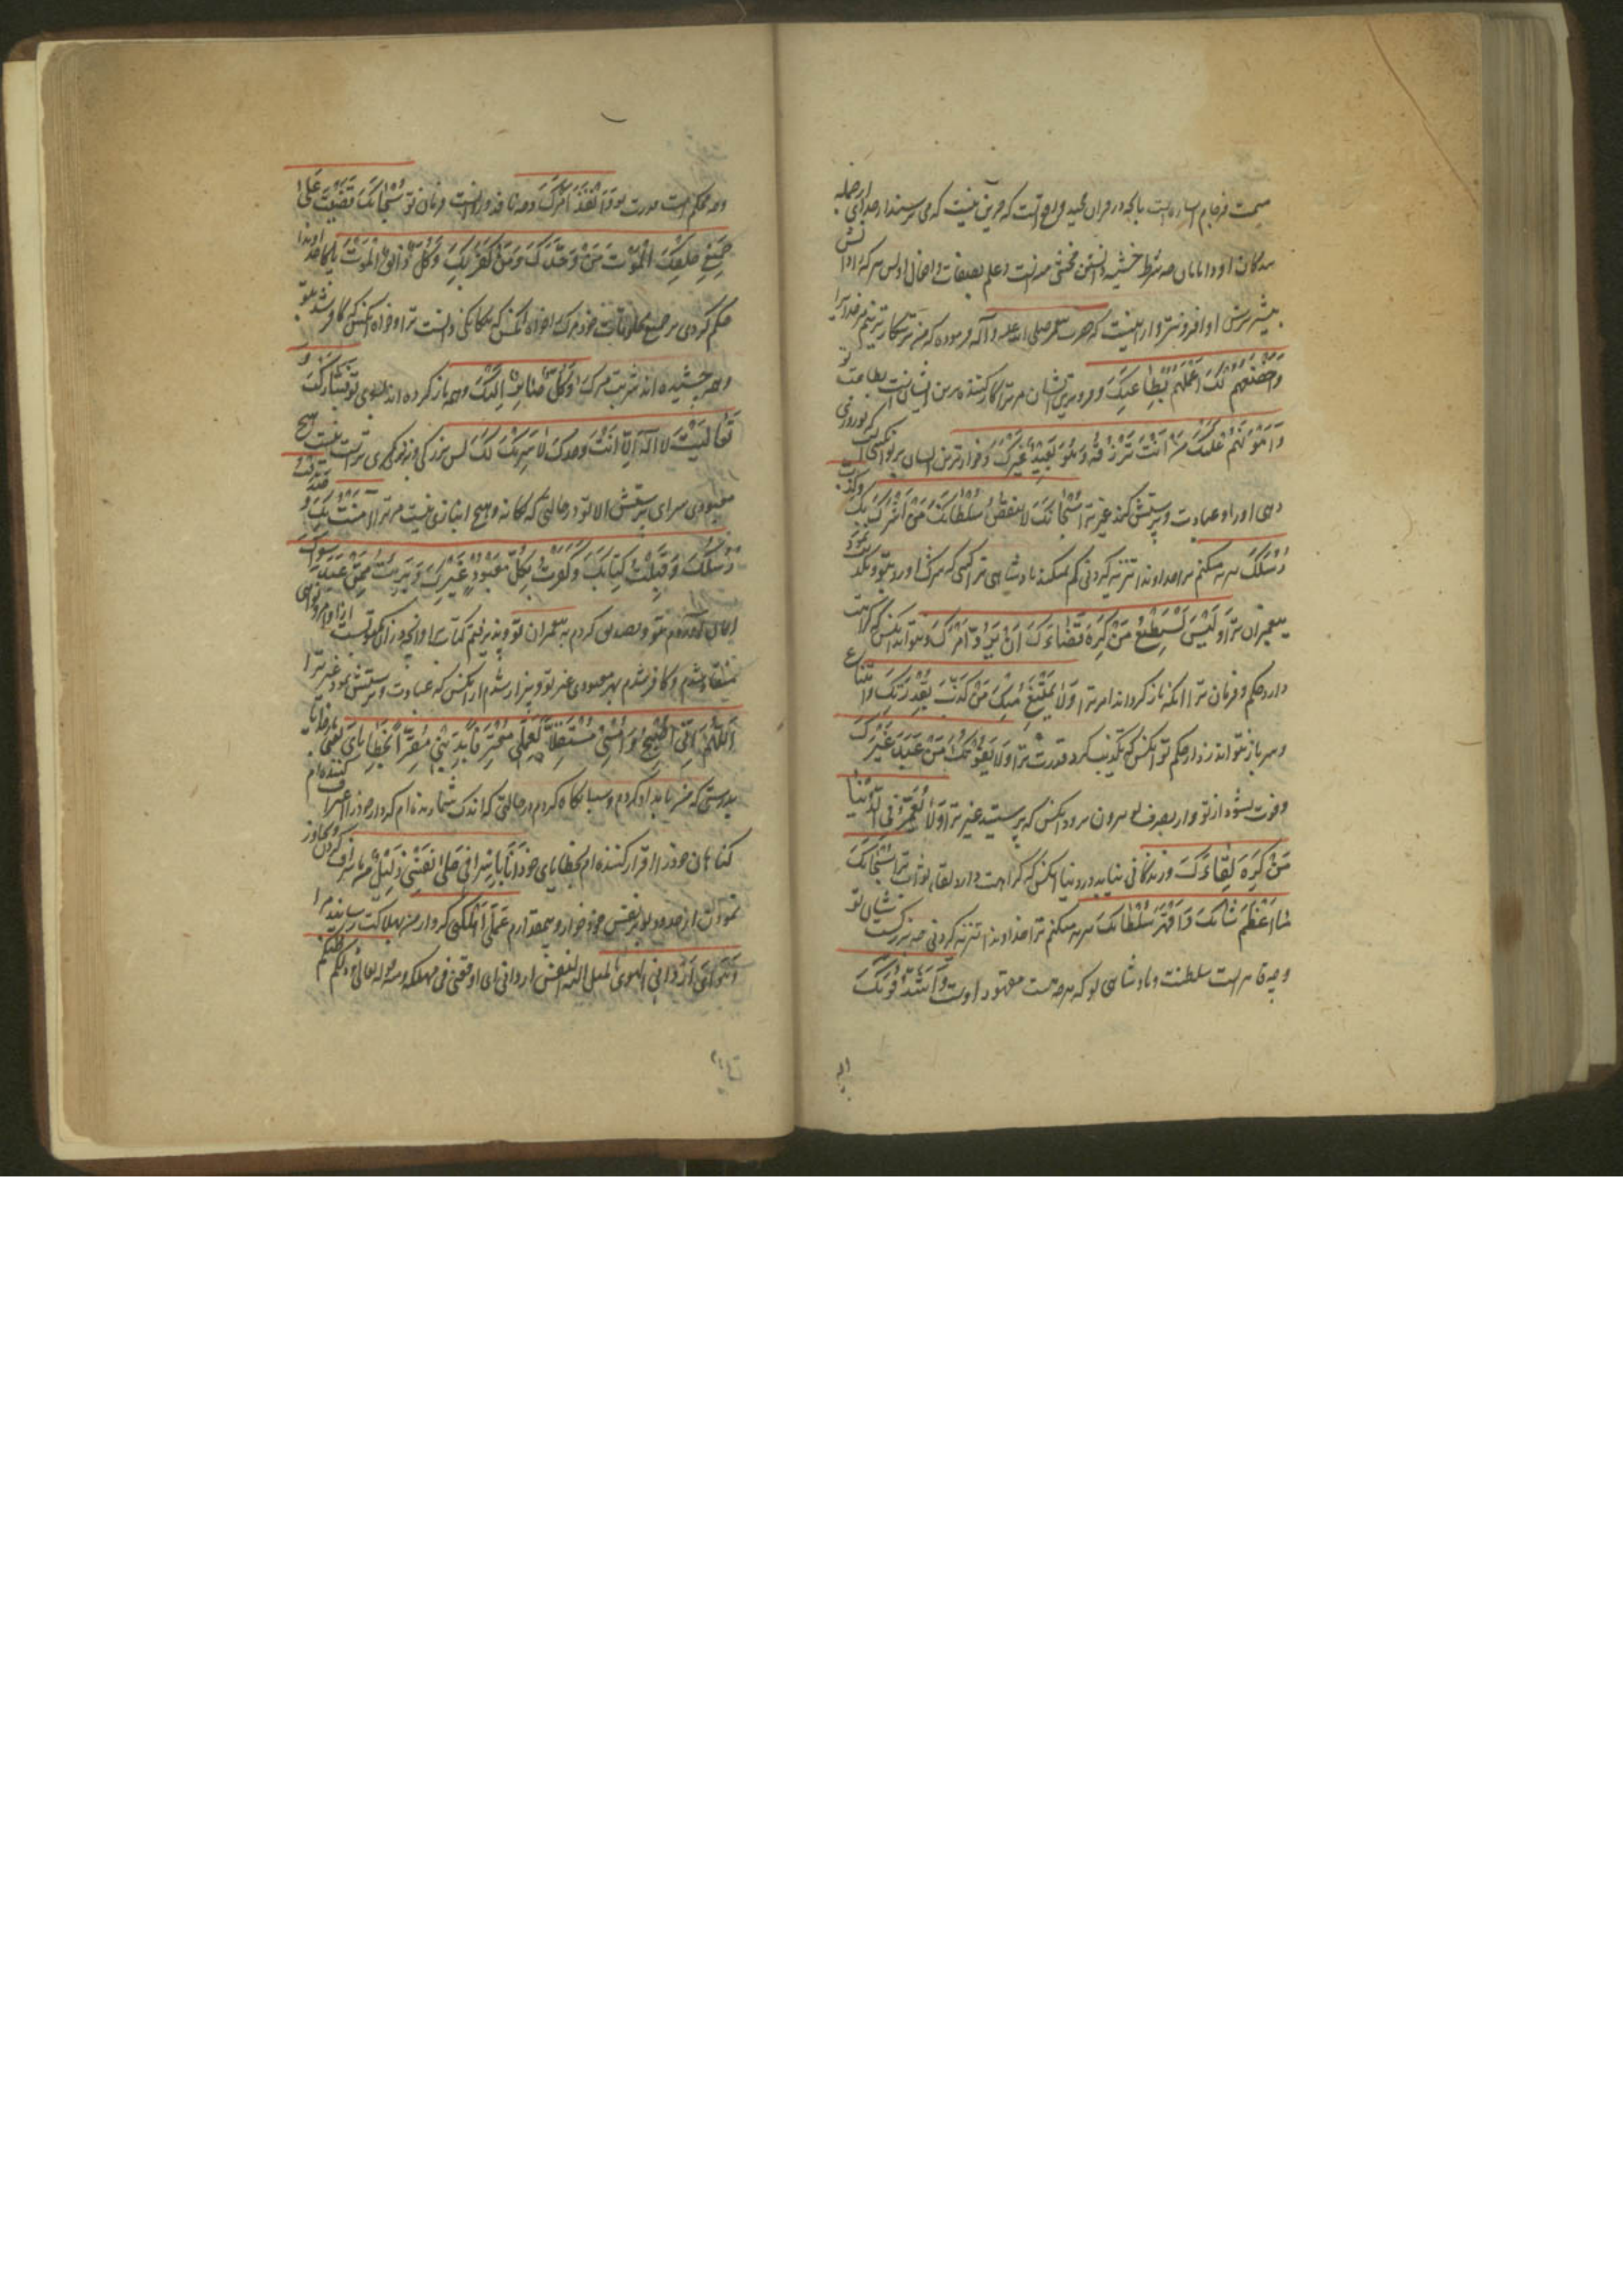 میمنت فرجام اشاره است بآنچه در قران مجید واقع است که جزین نیست که می ترسند از خدای از جمله
بندکان او دانایان چه شرط خشیه دانستن مخشی منه است و علم بصفات و افعال او پس هر که را دانش
بیشتر ترس او افزونتر و از اینست که حضرت پیغمبر صلی الله علیه و آله فرموده که من ترسکارترینم مر خدایرا
وَاَخْضَعَهُمْ لَكَ اَعْمَلُهُمْ بِطَاعَتِكَ و فروتنی ترین ایشان مر ترا کار کننده ترین ایشانست بطاعت تو
وَاَهْوَنَهُمْ عَلَيْكَ مَنْ اَنْتَ تَرْزُقُهُ وَهُوَ يَعْبُدُ غَيْرَكَ و خوارترین ایشان بر تو انکسی است که تو روزی
دهی او را و عبادت و پرستش کند غیر ترا سُبْحَانَكَ لَا يَنْقُصُ سُلْطَانَكَ مَنْ اَشْرَكَ بِكَ وَكَذَّبَ
رُسُلَكَ تنزیه میکنم ترا خداوندا تنزیه کردنی کم نمیکند پادشاهی ترا کسی که شرک اورد بتو و تکذیب نمود
پیغمبران ترا وَلَيْسَ يَسْتَطِيعُ مَنْ كَرِهَ قَضَاءَكَ اَنْ يَرُدَّ اَمْرَكَ و نتواند انکس که کراهت
دارد حکم و فرمان ترا اینکه باز کرداند امر ترا وَلَا يَمْتَنِعُ مِنْكَ مَنْ كَذَّبَ بِقُدْرَتِكَ و امتناع
و سر باز نتواند زد از حکم تو انکس که تکذیب کرد قدرت ترا وَلَا يَفُوتُكَ مَنْ عَبَدَ غَيْرَكَ
و فوت نشود از تو و از تصرف تو بیرون نرود انکس که پرستید غیر ترا وَلَا يُعَمَّرُ فِي الدُّنْيَا
مَنْ كَرِهَ لِقَاءَكَ و زندکانی نیابد در دنیا انکس که کراهت دارد لقای ثواب ترا سُبْحَانَكَ
مَا اَعْظَمَ شَاْنَكَ وَاَقْهَرَ سُلْطَانَكَ تنزیه میکنم ترا خداوندا تنزیه کردنی چه بزرکست شان تو
و چه قاهر است سلطنت و پادشاهی تو که هر چه هست مقهور اوست وَاَشَدَّ قُوَّتَكَ
و چه محکم است قدرت تو وَاَنْفَذَ اَمْرَكَ و چه نافذ و روانست فرمان تو سُبْحَانَكَ قَضَيْتَ عَلَى
جَمِيعِ خَلْقِكَ الْمَوْتَ مَنْ وَحَّدَكَ وَمَنْ كَفَرَ بِكَ وَكُلٌّ ذَائِقُ الْمَوْتِ پاکا خداوندا
حکم کردی بر جمیع مخلوقات خود مرک را خواه انکس که بیکانکی دانست ترا و خواه انکس که کافر شد بتو
و همه چشیده اند شربت مرک وَكُلٌّ صَائِرٌ اِلَيْكَ و همه باز کردنده اند بسوی تو فَتَبَارَكْتَ وَ
تَعَالَيْتَ لَا اِلٰهَ اِلَّا اَنْتَ وَحْدَكَ لَا شَرِيكَ لَكَ پس بزرکی و برتری تراست نیست هیچ
معبودی سزای پرستش الا تو در حالتی که یکانه و هیچ انبازی نیست مر ترا آمَنْتُ بِكَ وَصَدَّقْتُ
رُسُلَكَ وَقَبِلْتُ كِتَابَكَ وَكَفَرْتُ بِكُلِّ مَعْبُودٍ غَيْرِكَ وَبَرِئْتُ مِمَّنْ عَبَدَ سِوَاكَ
ایمان اوردم بتو و تصدیق کردم پیغمبران تو و پذیرفتم کتاب ترا و انچه در آن مکتوبست از اوامر و نواهی
منقاد شدم و کافر شدم بهر معبودی غیر تو و بیزار شدم از انکس که عبادت و پرستش نمود غیر ترا
اَللّٰهُمَّ اِنِّي اُصْبِحُ وَاُمْسِي مُسْتَقِلًّا لِعَمَلِي مُعْتَرِفًا بِذَنْبِي مُقِرًّا بِخَطَايَايَ بار خدایا
بدرستی که من بامداد کردم و شبانکاه کردم در حالتی که اندک شمارنده ام کردار خود را اعتراف کننده ام
کناهان خود را اقرار کننده ام بخطایای خود اَنَا بِاِسْرَافِي عَلَى نَفْسِي ذَلِيلٌ من باسراف کردن و تجاوز
نمودن از حدود تو بر نفس خود خوار و بیمقدارم عَمَلِي اَهْلَكَنِي کردار من بهلاکت رسانید مرا
وَهَوَايَ اَرْدَانِي الهوی المیل الی النفس اردانی ای اوقعنی فی مهلکه و منه قوله تعالی و ذلکم ظنکم